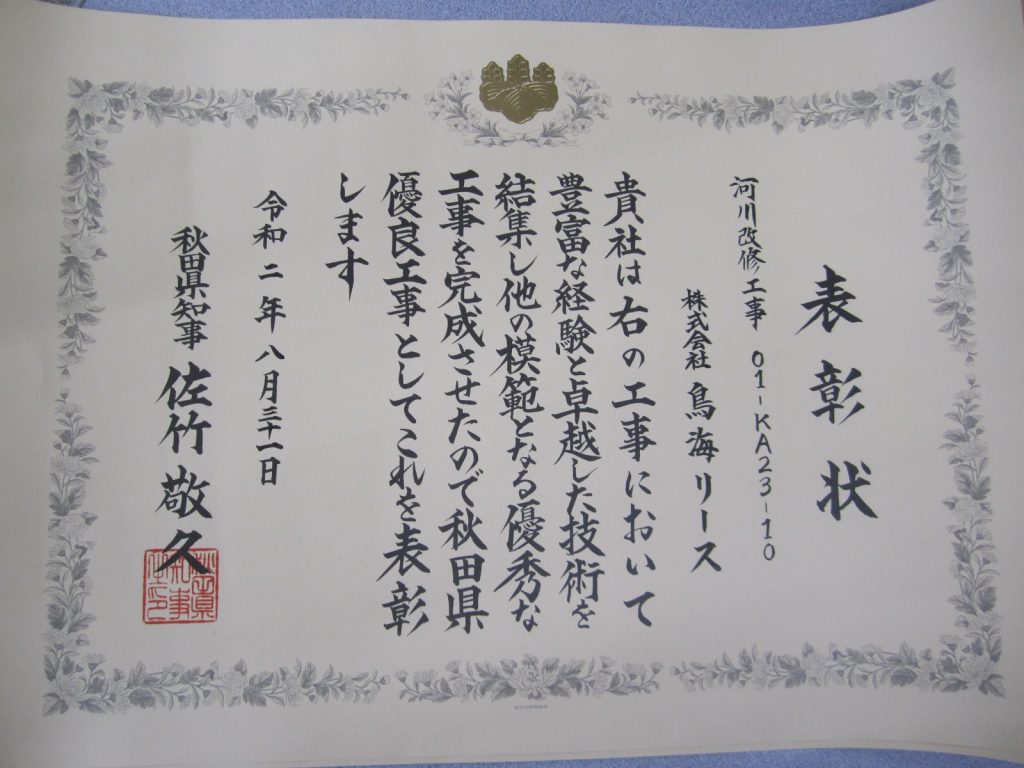 表彰状
河川改修工事 01-KA23-10
株式会社 鳥海リース
貴社は右の工事において
豊富な経験と卓越した技術を
結集し他の模範となる優秀な
工事を完成させたので秋田県
優良工事としてこれを表彰
します
令和二年八月三十一日
秋田県知事 佐竹敬久